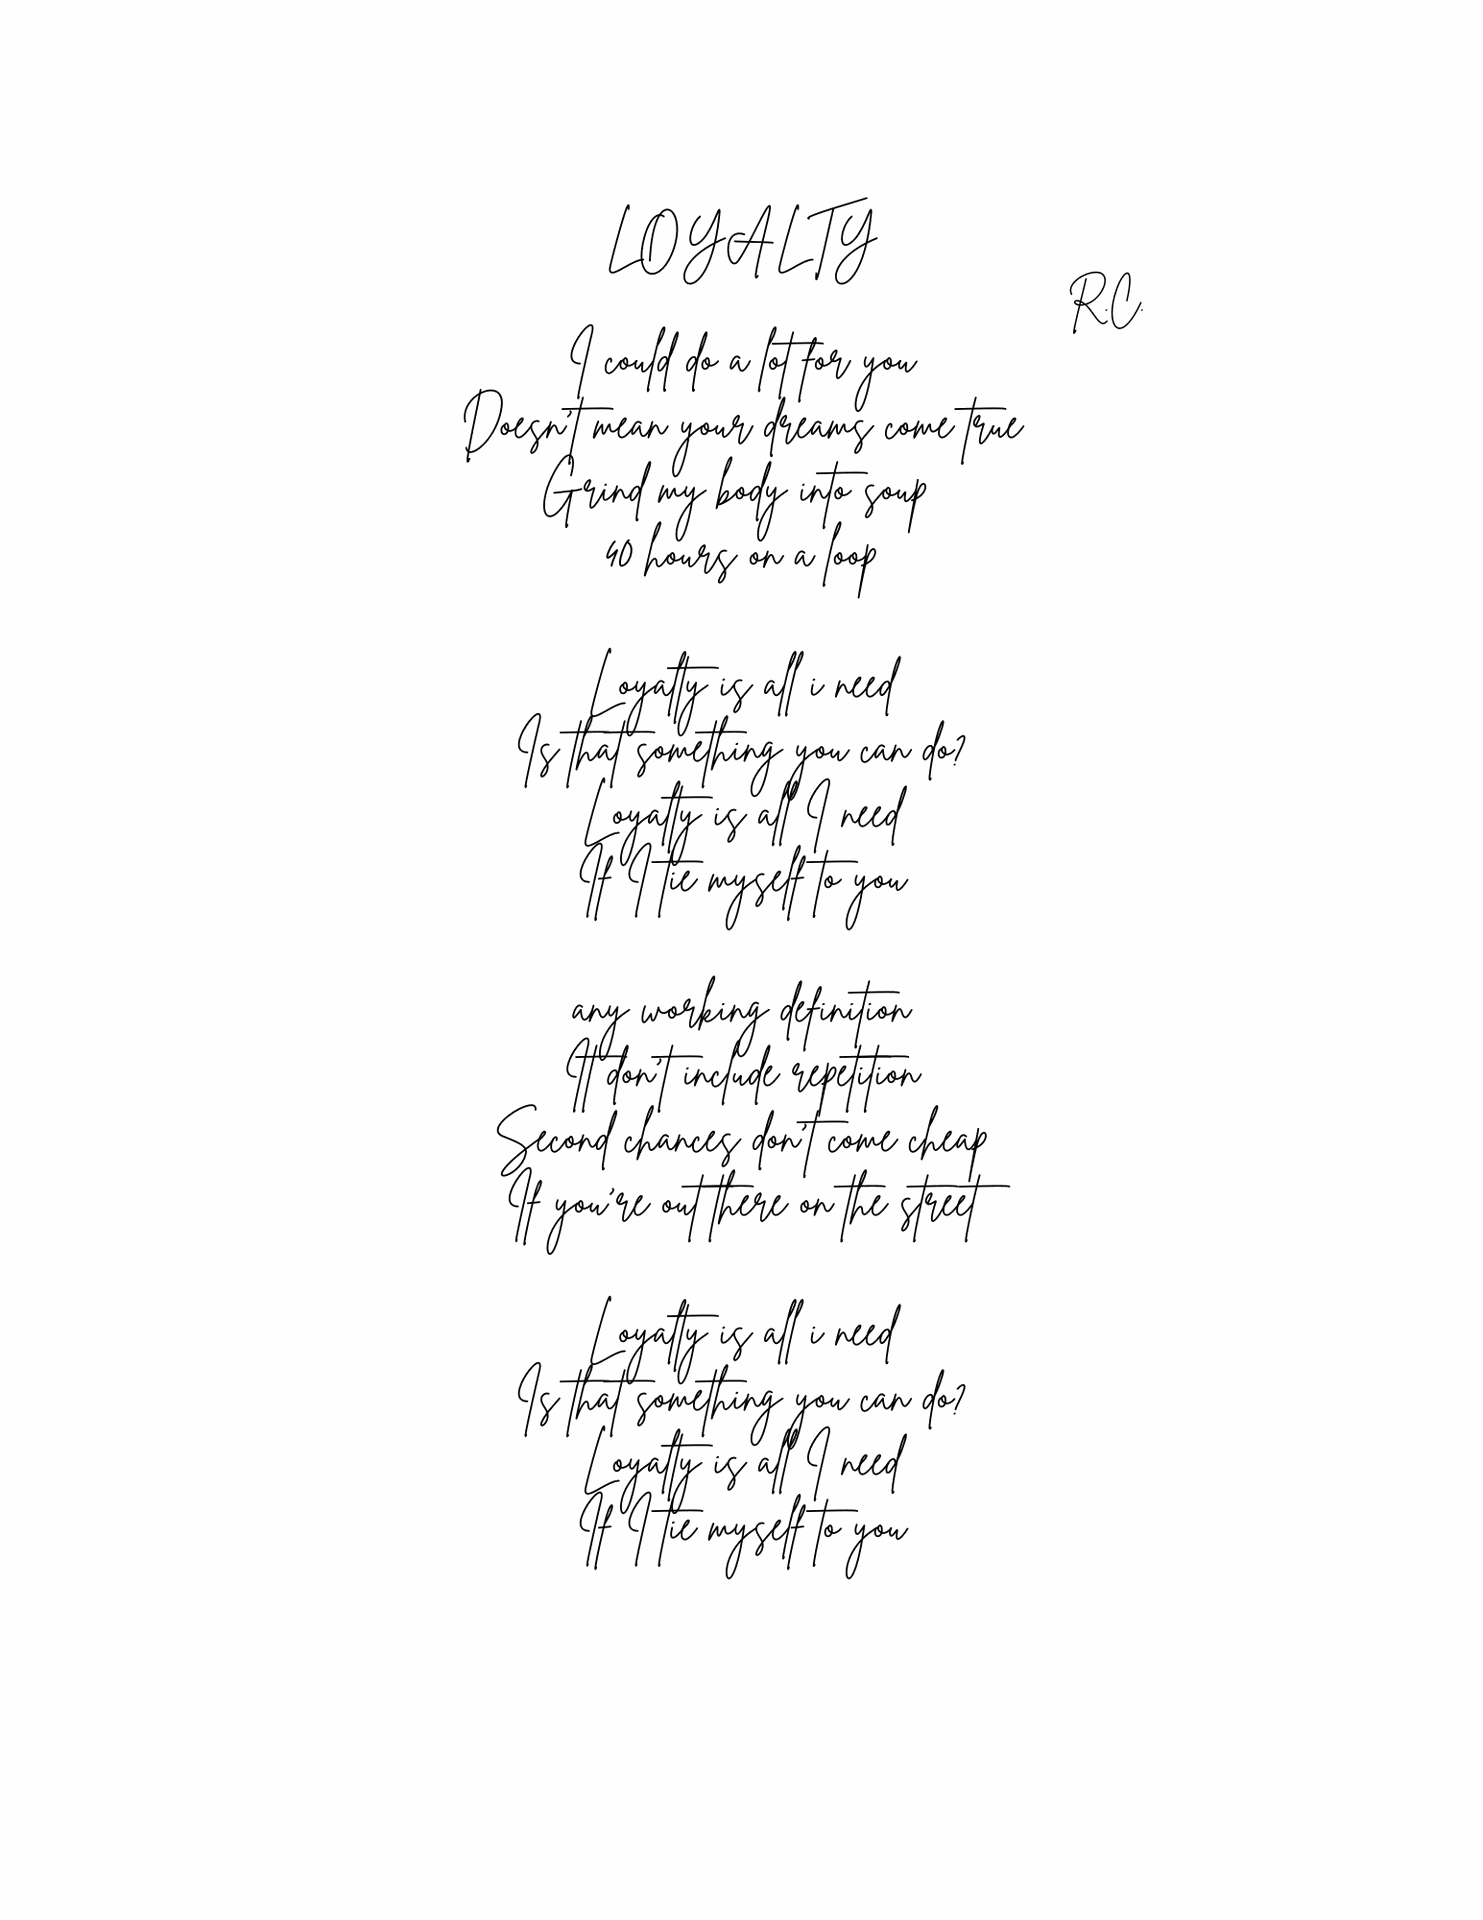 LOYALTY
R.C.
I could do a lot for you
Doesn't mean your dreams come true
Grind my body into soup
40 hours on a loop
Loyalty is all i need
Is that something you can do?
Loyalty is all I need
If I tie myself to you
any working definition
It don't include repetition
Second chances don't come cheap
If you're out there on the street
Loyalty is all i need
Is that something you can do?
Loyalty is all I need
If I tie myself to you